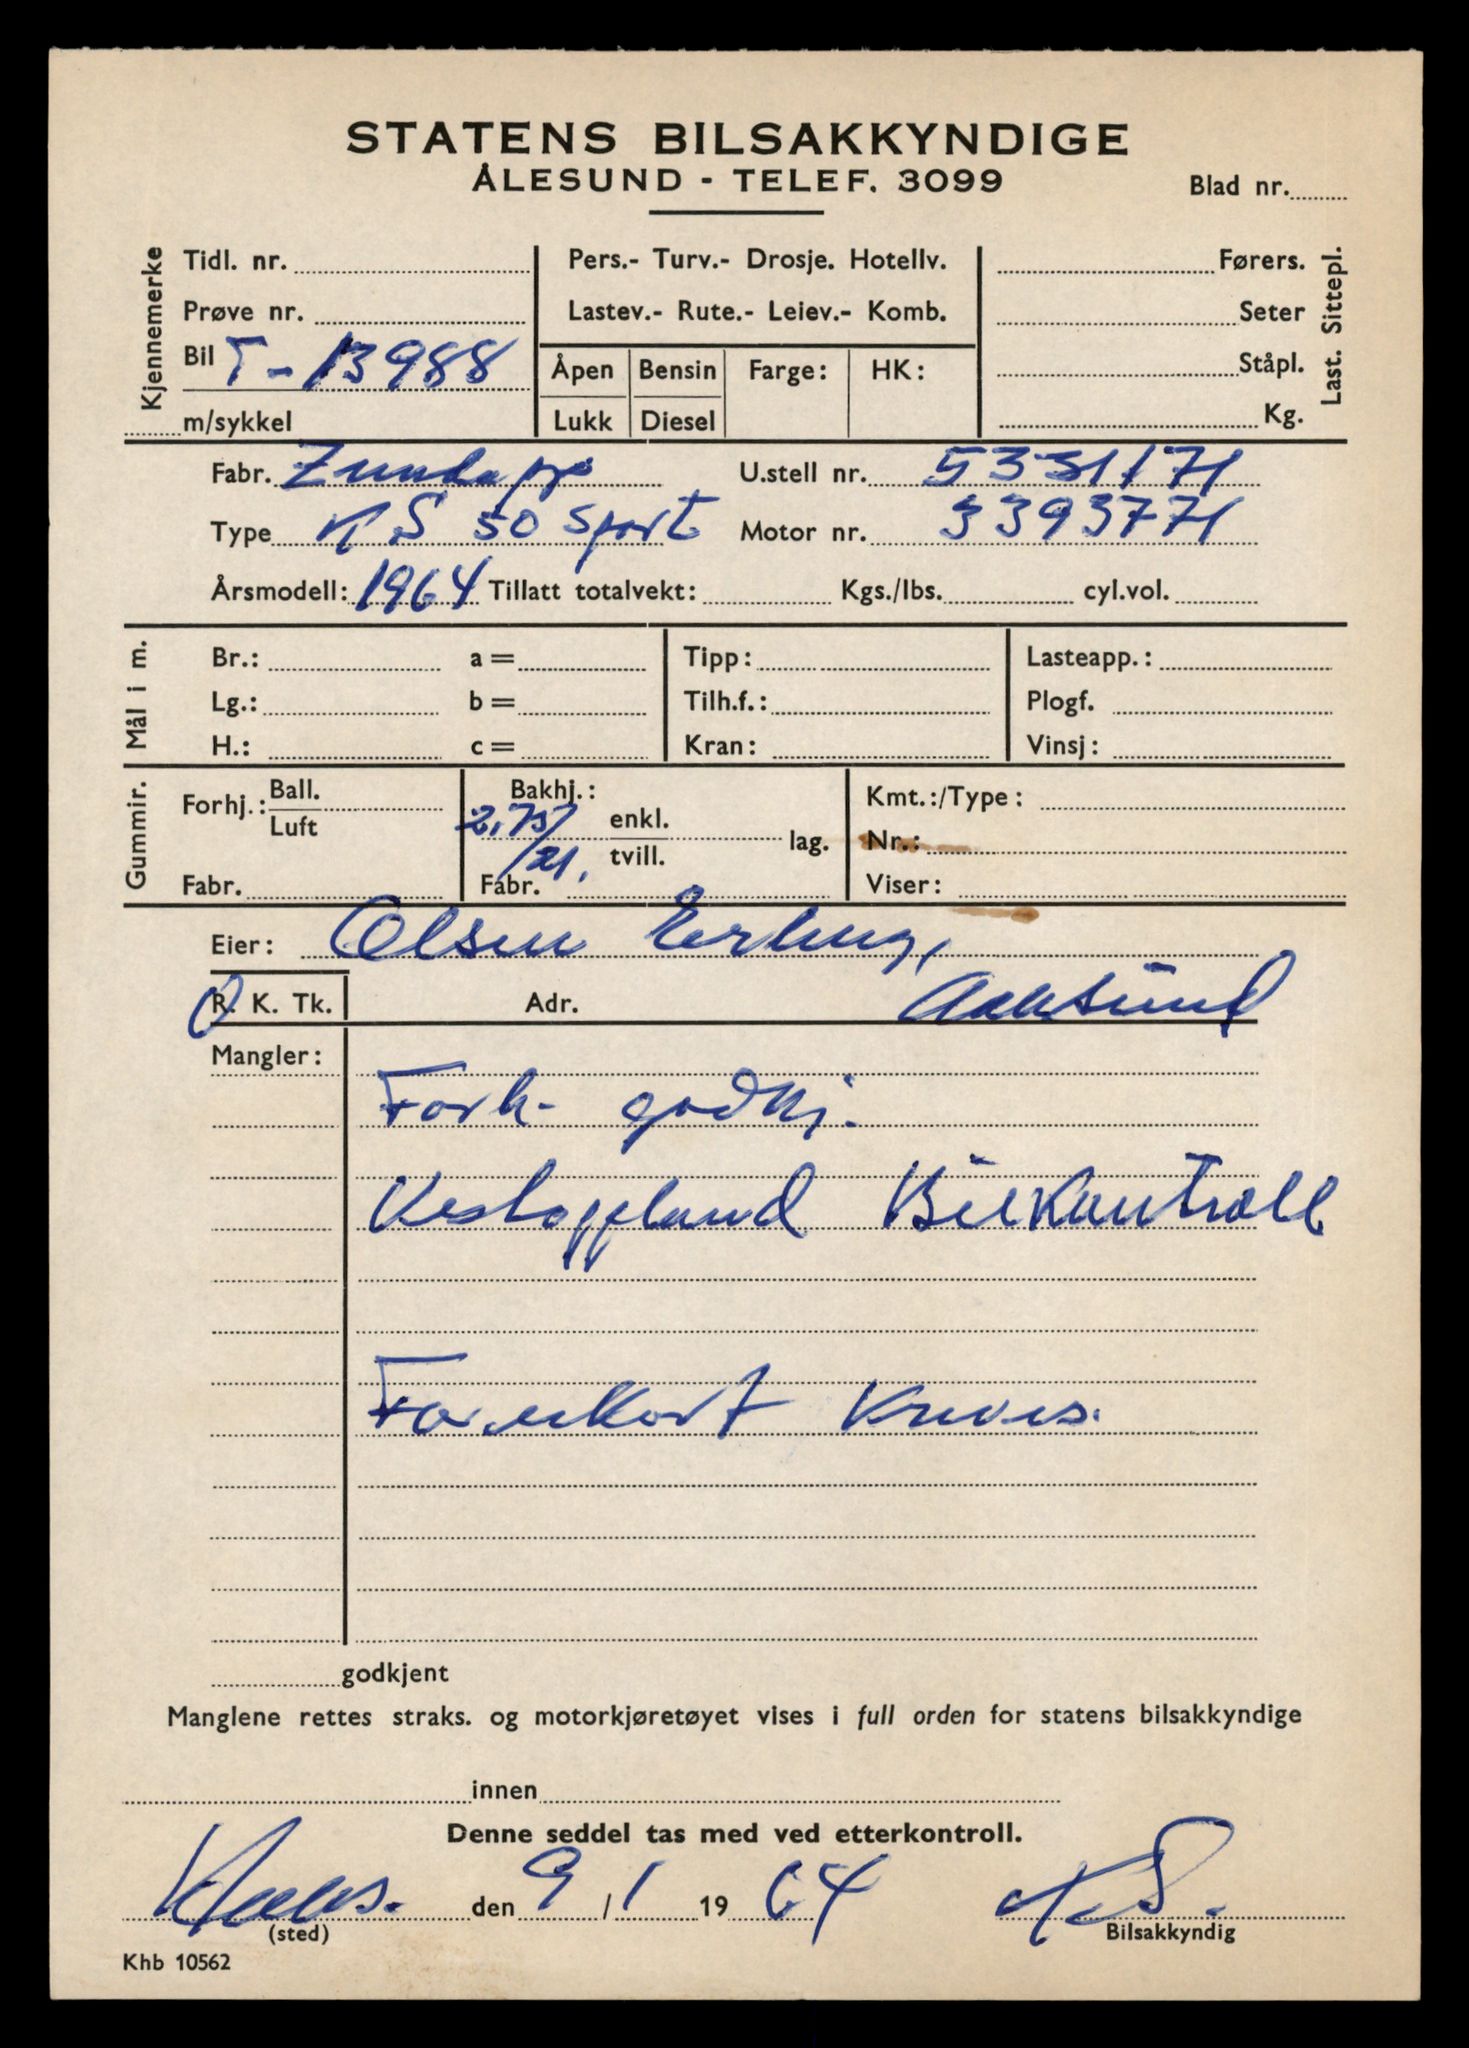 STATENS BILSAKKYNDIGE
ÅLESUND - TELEF. 3099
Blad nr.
Kjennemerke
Tidl. nr.
Prøve nr.
Bil T-13988
m/sykkel
Pers.- Turv.- Drosje. Hotellv.
Lastev.- Rute.- Leiev.- Komb.
Åpen Bensin Farge: HK:
Lukk Diesel
Førers.
Seter
Ståpl.
Kg.
Last. Sittepl.
Fabr. Zundapp U.stell nr. 5331171
Type KS 50 Sport Motor nr. 3393771
Årsmodell: 1964 Tillatt totalvekt: Kgs./lbs. cyl.vol.
Mål i m.
Br.: a = Tipp: Lasteapp.:
Lg.: b = Tilh.f.: Plogf.
H.: c = Kran: Vinsj:
Gummir.
Forhj.: Ball.
Luft
Fabr.
Bakhj.:
2.75/21. enkl.
tvill. lag.
Fabr.
Kmt.:/Type:
Nr.:
Viser:
Eier: Olsen Erling,
R. K. Tk. Adr. Aalesund
Mangler:
Forh. godkj.
Bilkontroll
Førerkort kreves.
godkjent
Manglene rettes straks. og motorkjøretøyet vises i full orden for statens bilsakkyndige
innen
Denne seddel tas med ved etterkontroll.
den 9/1 1964
(sted)
Bilsakkyndig
Khb 10562